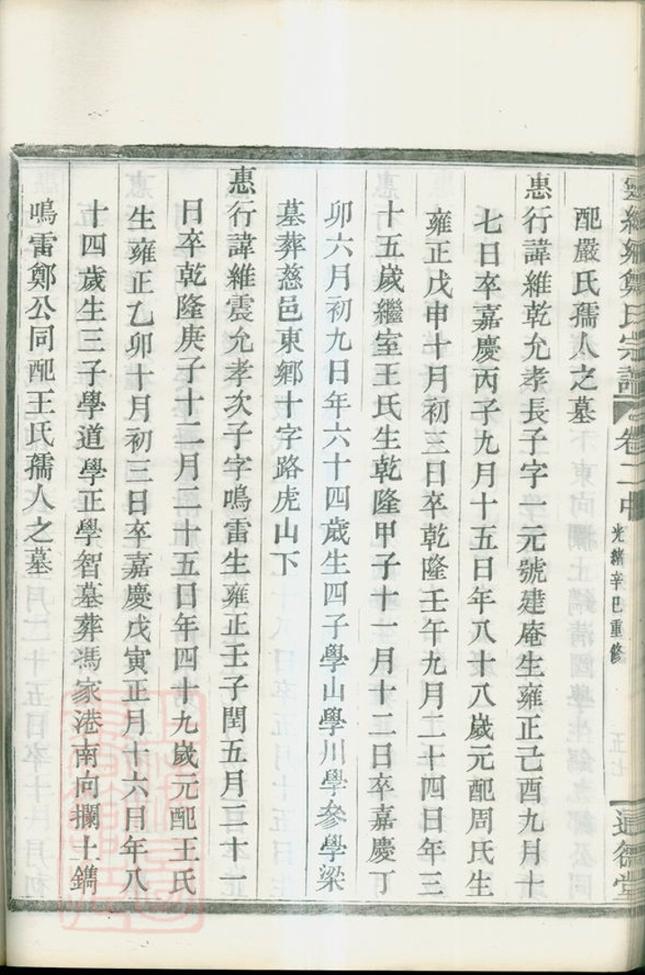 鄭氏宗譜 卷二中 光緒辛巳重修
配嚴氏孺人之墓
惠行諱維乾允孝長子字 元號建庵生雍正己酉九月十
七日卒嘉慶丙子九月十五日年八十八歲元配周氏生
雍正戊申十月初三日卒乾隆壬午九月二十四日年三
十五歲繼室王氏生乾隆甲子十一月十二日卒嘉慶丁
卯六月初九日年六十四歲生四子學山學川學參學梁
墓葬慈邑東鄉十字路虎山下
惠行諱維震允孝次子字鳴雷生雍正壬子閏五月二十一
日卒乾隆庚子十二月二十五日年四十九歲元配王氏
生雍正乙卯十月初三日卒嘉慶戊寅正月十六日年八
十四歲生三子學道學正學智墓葬馮家港南向攔土鐫
鳴雷鄭公同配王氏孺人之墓